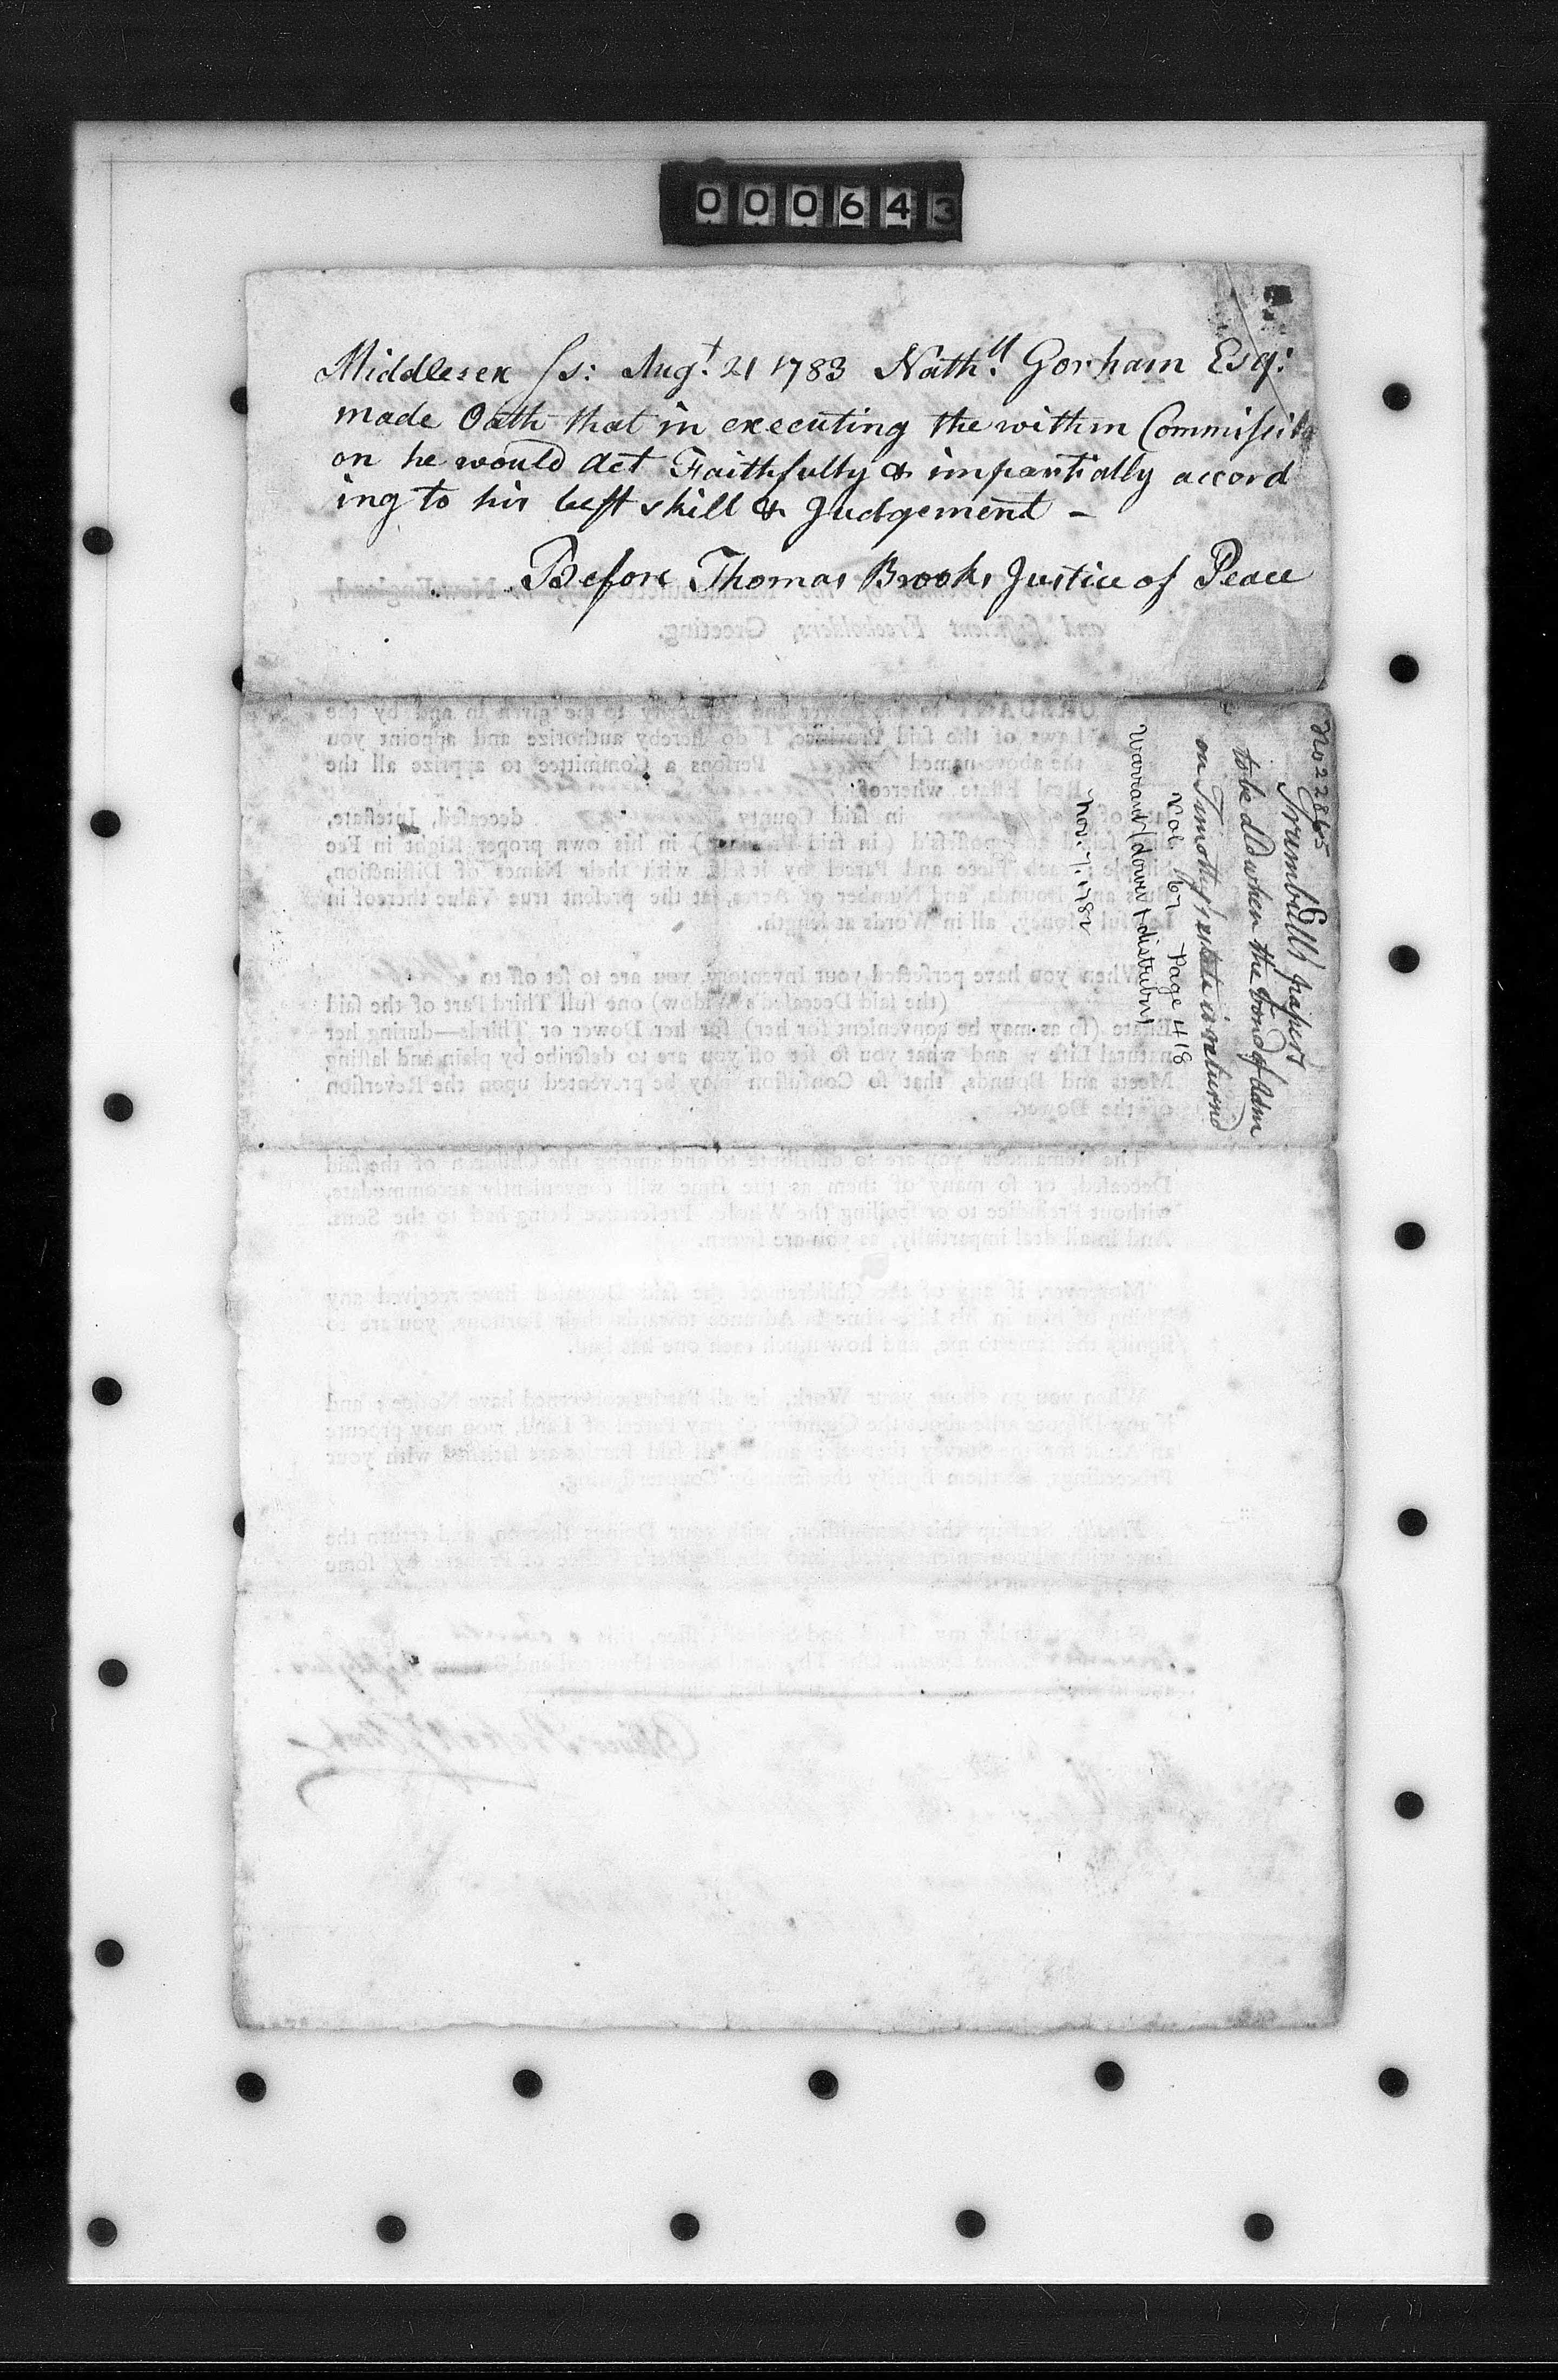 000643
Middlesex ss: Augt. 21 1783 Nathll. Gorham Esqr:
made Oath that in executing the within Commissi
on he would act Faithfully & impartially accord
ing to his best skill & Judgement -
Before Thomas Brooks Justice of Peace
No 22865
Trumbull's papers
to be dld when the bond of adm
on Timothy's estate is returnd
Vol 67 Page 418
Warrant (dower & distribn)
Nov. 7. 1782
and sufficient Freeholders, Greeting.
Laws of the said Province, I do hereby authorize and appoint you
the above-named Persons a Committee to apprize all the
Real Estate, whereof
in said County deceased, Intestate,
in his own proper Right in Fee
Piece and Parcel by itself, with their Names of Distinction,
and Bounds, and Number of Acres, at the present true Value thereof in
Money, all in Words at length.
When you have perfected your Inventory, you are to set off to
(the said Deceased's Widow) one full Third Part of the said
Estate (so as may be convenient for her) for her Dower or Thirds—during her
natural Life; and what you so set off you are to describe by plain and lasting
Meets and Bounds, that so Confusion may be prevented upon the Reversion
of the Dower.
The Remainder you are to distribute to and among the Children of the said
Deceased, or so many of them as the same will conveniently accommodate,
without Prejudice to or spoiling the Whole. Preference being had to the Sons.
And in all deal impartially, as you are sworn.
Moreover, if any of the Children of the said Deceased have received any
Thing of him in his Life-time to Advance towards their Portions, you are to
signify the same to me, and how much each one has had.
When you go about your Work, let all Parties concerned have Notice; and
if any Dispute arise about the Quantity of any Parcel of Land, you may procure
an Artist for the Survey thereof; and if all said Parties are satisfied with your
Proceedings, let them signify the same by Countersigning.